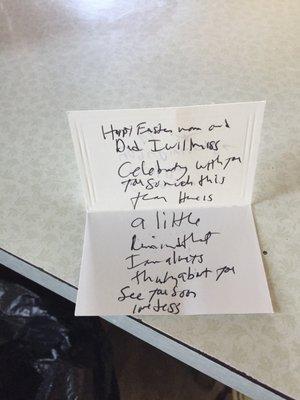 Happy Easter mom and
Dad I will miss
Celebrating with you
you so much this
year Here is
a little
Reminder that
I am always
thinking about you
See you soon
love Jess